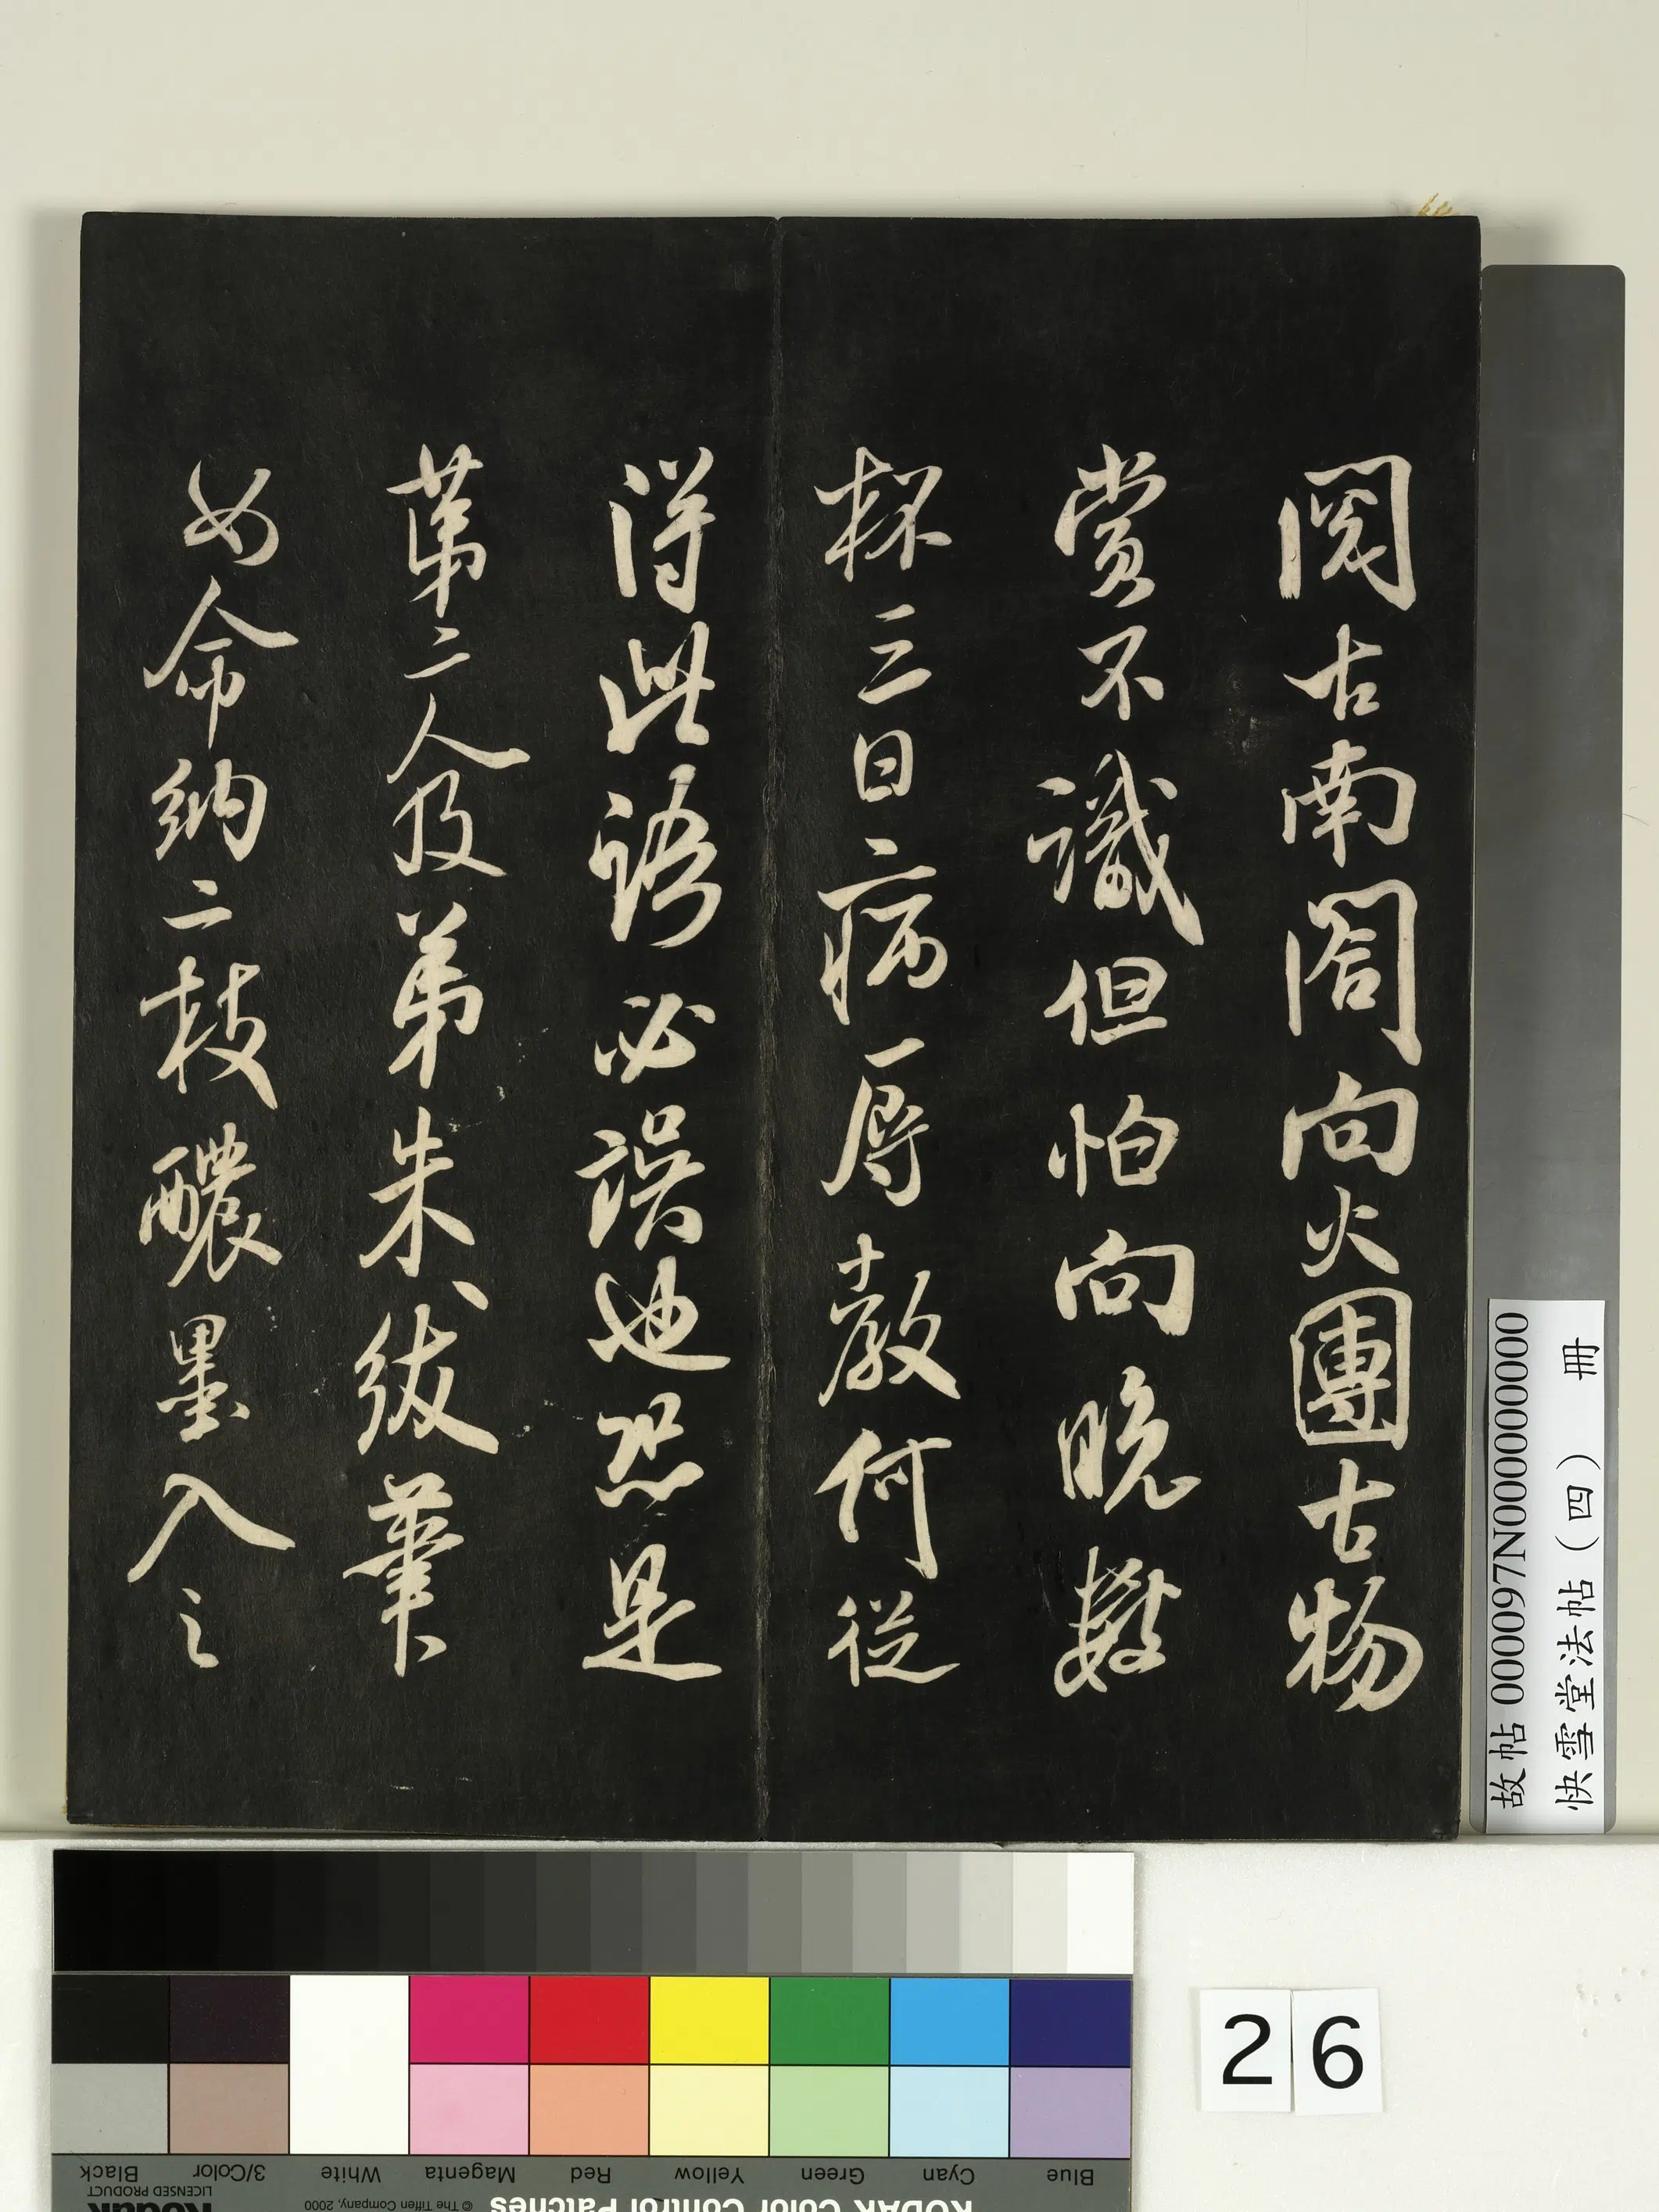 閱古南閣向火團古物
賞不識但怕向晚數
杯三日病辱教何從
得此語必誤也恐是
第二人及弟朱紱筆
如命納二枝醲墨入之
故帖 000097N000000000
快雪堂法帖（四） 冊
26
Blue
Cyan
Green
Yellow
Red
Magenta
White
3/Color
Black
KODAK Color Control Patches
© The Tiffen Company, 2000
Kodak
LICENSED PRODUCT